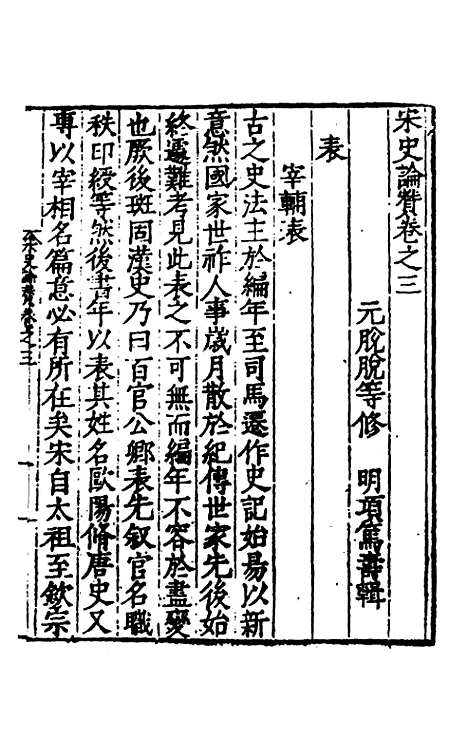 宋史論贊卷之三
元脫脫等修　明項篤壽輯
表
宰輔表
古之史法主於編年至司馬遷作史記始易以新
意然國家世祚人事歲月散於紀傳世家先後始
終遽難考見此表之不可無而編年不容於盡變
也厥後班固漢史乃曰百官公卿表先叙官名職
秩印綬等然後書年以表其姓名歐陽脩唐史又
專以宰相名篇意必有所在矣宋自太祖至欽宗
宋史論贊卷之三